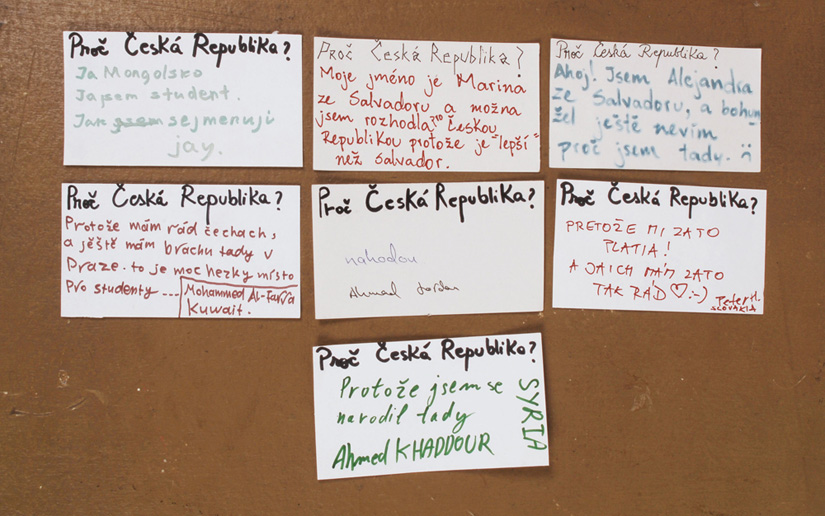 Proč Česká Republika?
Ja Mongolsko
Ja jsem student.
Jak jsem se jmenuji
jay.
Proč Česká Republika?
Moje jméno je Marina
ze Salvadoru a možna
jsem rozhodla pro Českou
Republikou protože je "lepší"
než Salvador.
Proč Česká Republika?
Ahoj! Jsem Alejandra
ze Salvadoru, a bohu
žel ještě nevím
proč jsem tady. :(
Proč Česká Republika?
Protože mám rád čechach,
a jěště mám bráchu tady v
Praze. to je moc hezky místo
Pro studenty ---
Mohammed
Kuwait.
Proč Česká Republika?
nahodou
Ahmad Jordan
Proč Česká Republika?
PRETOŽE MI ZATO
PLATIA!
A JA ICH MÁM ZATO
TAK RÁD ♡ :-)
Peter H.
SLOVAKIA
Proč Česká Republika?
Protože jsem se
narodil tady
Ahmed KHADDOUR
SYRIA